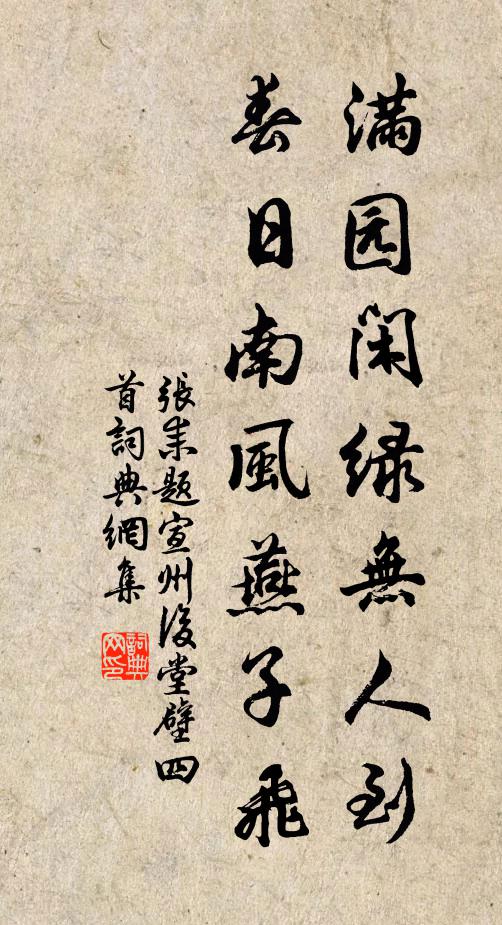 满园闲绿無人到
春日南風燕子飛
張耒题宣州後堂壁四
首詞典網集
詞典网印